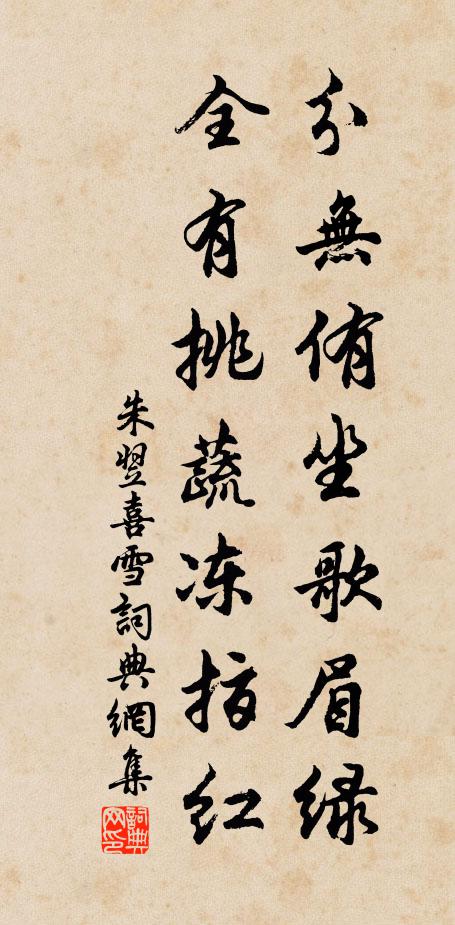 分無侑坐歌眉緑
全有挑蔬冻指红
朱翌喜雪詞典網集
詞典网印